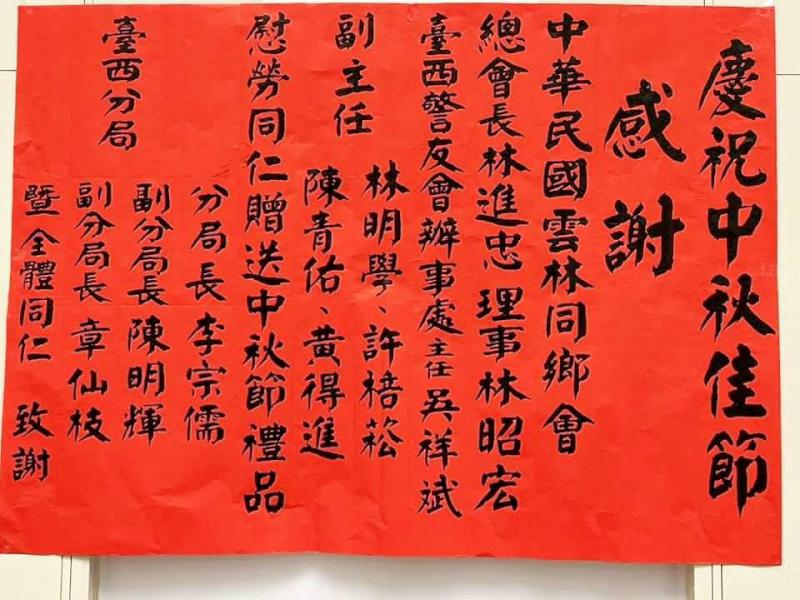 慶祝中秋佳節
感謝
中華民國雲林同鄉會
總會長林進忠理事林昭宏
臺西警友會辦事處主任吳祥斌
副主任
林明學、許棓菘
陳青佑、黃得進
慰勞同仁贈送中秋節禮品
臺西分局
分局長李宗儒
副分局長陳明輝
副分局長章仙枝
暨全體同仁 致謝